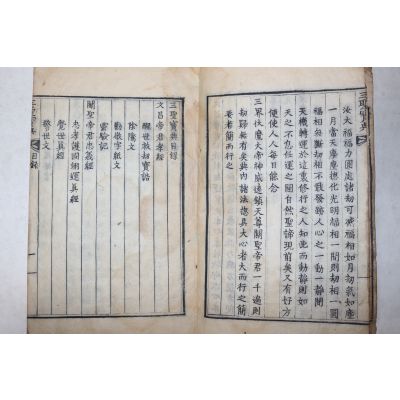 三聖寶典
汝大福福力圓處諸劫可成福相如月劫氣如塵
一月當天塵塵撫化光明福相一間則劫相一圓
福相無斷劫相不戬發蹟人心之一動一靜間
天機轉運於這裏修行之人知此而動靜則如
天之不息任運之圓自然聖諦現前矣又有好方
便使人人每日能念
三界伏魔大帝神威遠鎮天尊關聖帝君一千遍則
劫歸無有矣與內諸法應具大心者大而行之簡
要者簡而行之
三聖寶典目錄
文昌帝君孝經
醒世救劫寶誥
陰隲文
勸敬字紙文
靈驗記
關聖帝君忠義經
忠孝護國翊運真經
覺世真經
警世文
三聖寶典 目錄 一